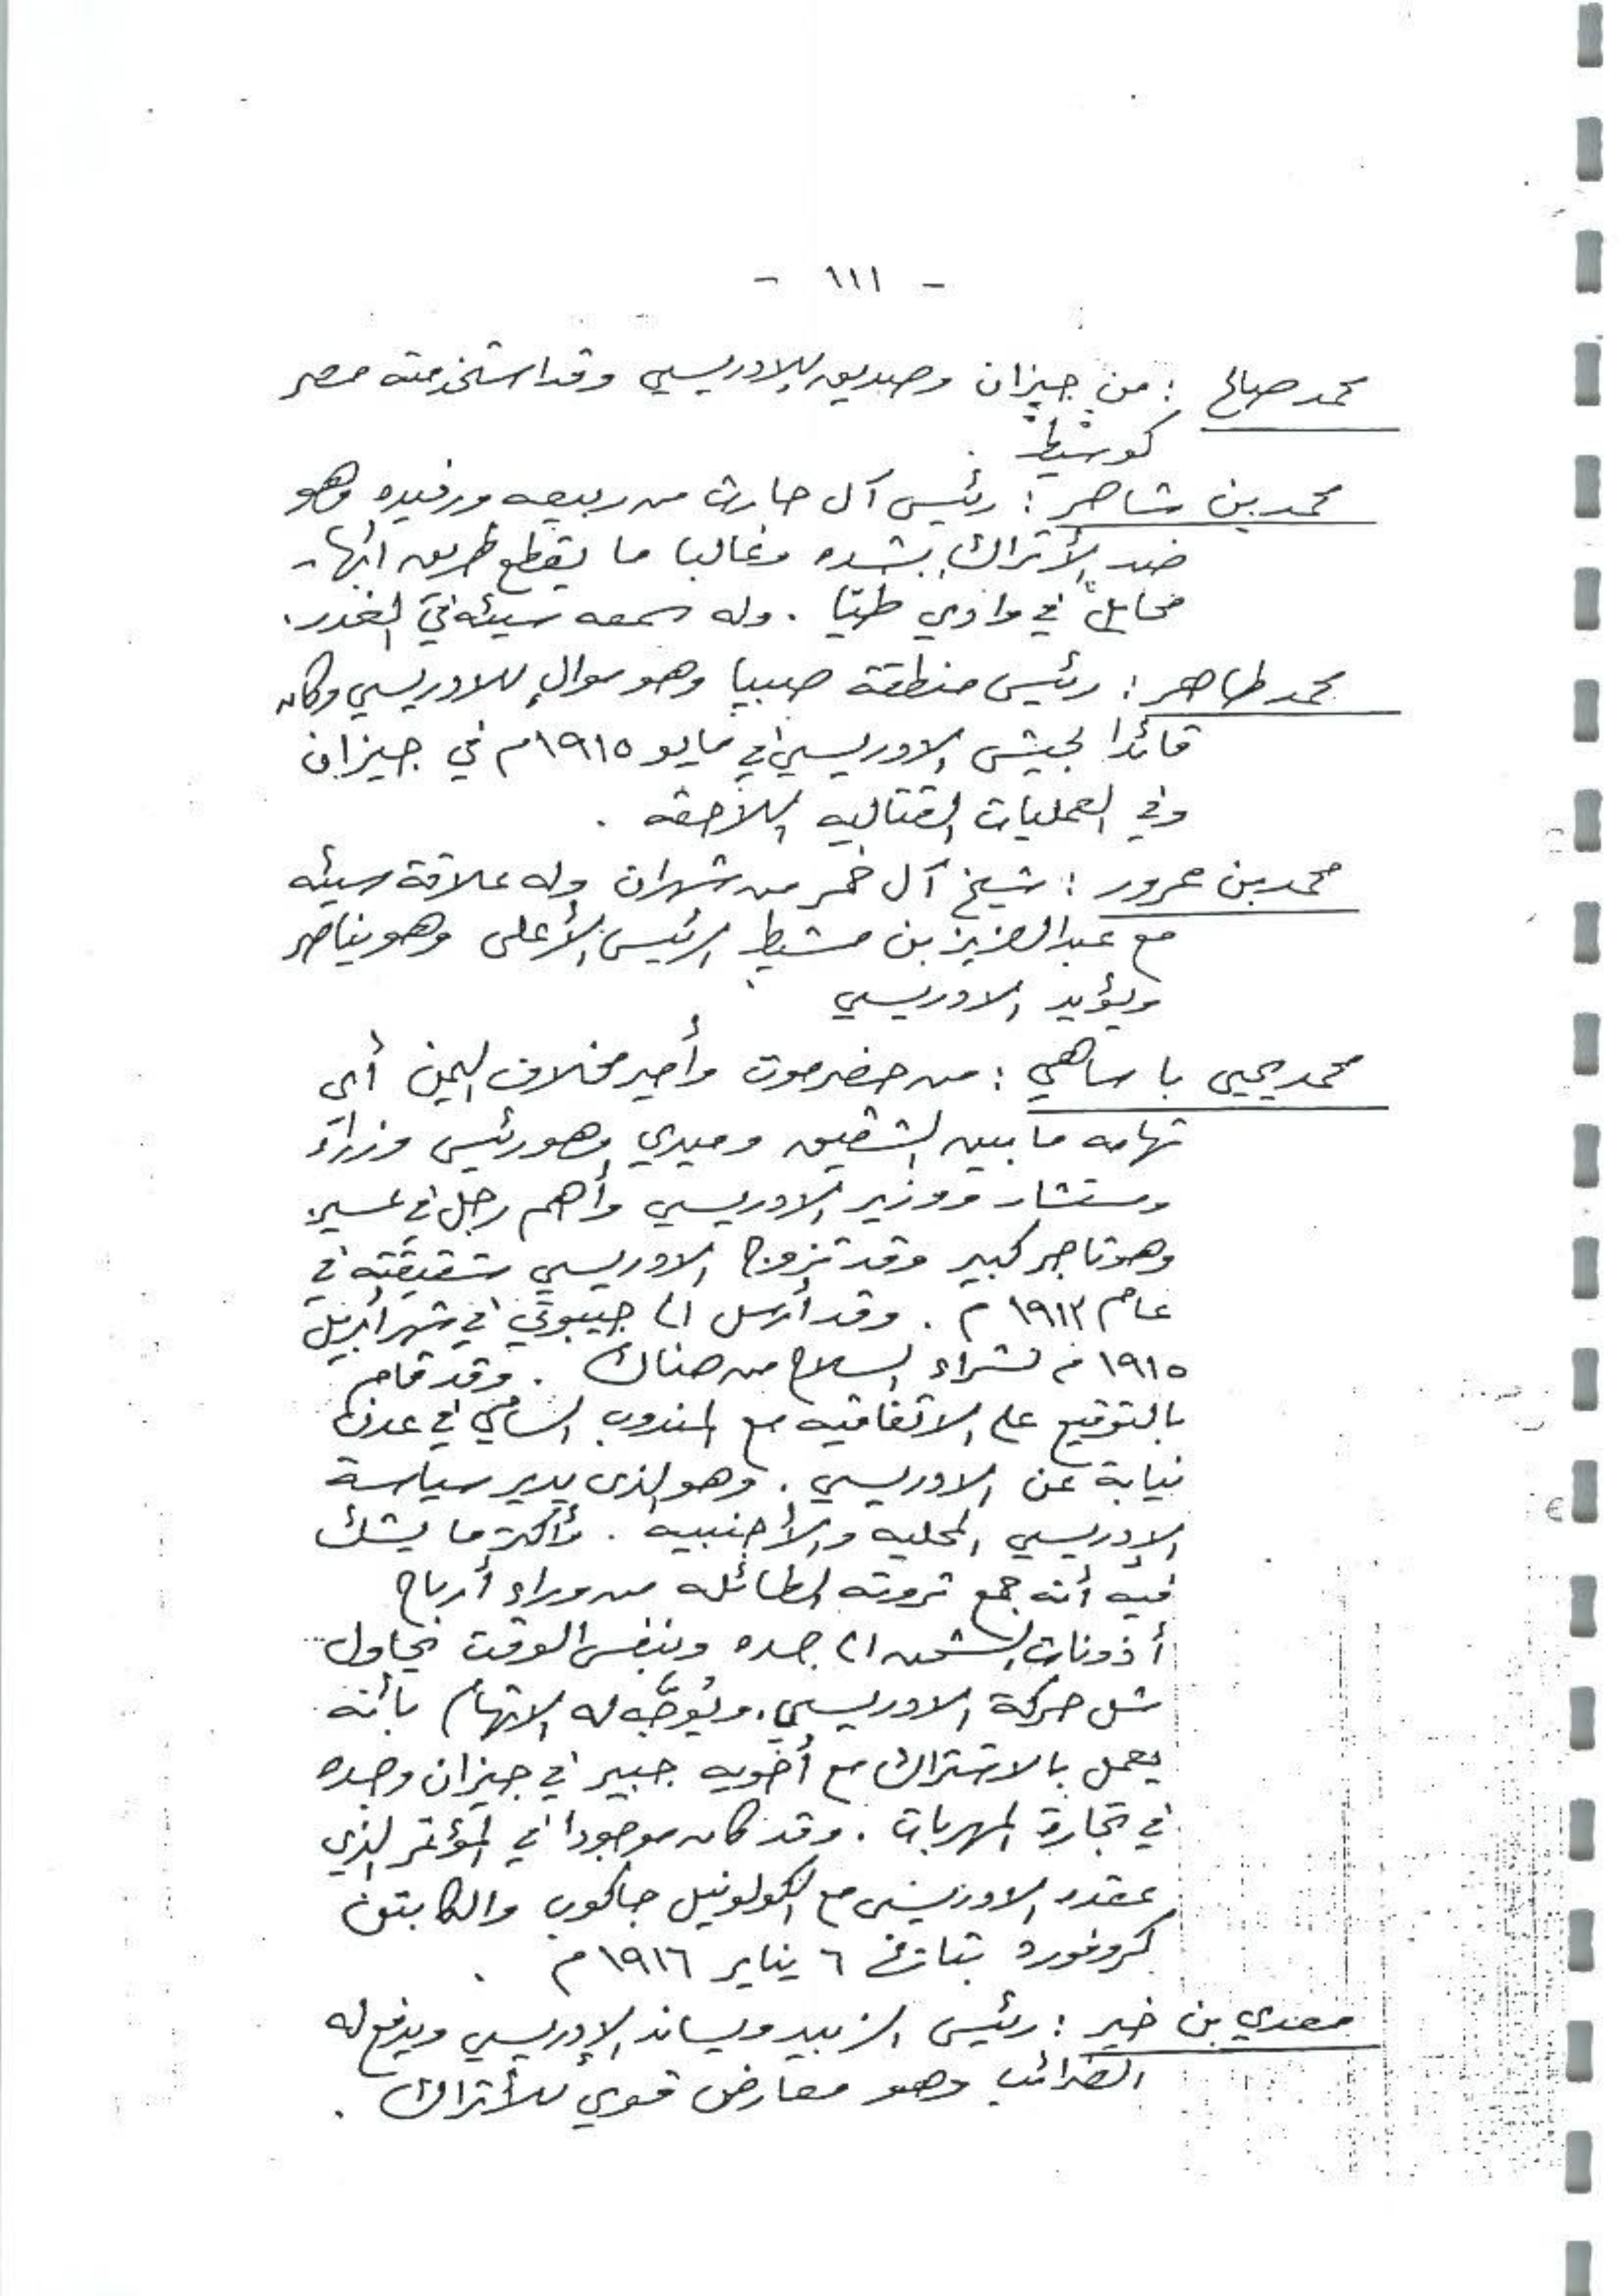 - ١١١ -
محمد صالح : من جيزان وصديق للادريسي وقد استخدمته مصر
كوسيط .
محمد بن شاهر : رئيس آل حارث من ربيعه ورفيده وهو
ضد الأتراك بشده وغالبا ما يقطع طريق ابها -
محايل في وادي طيّا . وله سمعه سيئه في الغدر .
محمد طاهر : رئيس منطقة صبيا وهو موالٍ للادريسي وكان
قائدا لجيش الادريسي في مايو ١٩١٥م في جيزان
وفي العمليات القتاليه اللاحقه .
محمد بن عرور : شيخ آل غمر من شهران وله علاقة سيئه
مع عبدالعزيز بن مشيط الرئيس الأعلى وهو يناصر
ويؤيد الادريسي
محمد يحيى با ساهي : من حضرموت وأمير مخلاف اليمن أي
تهامه ما بين الشقيق وميدي وهو رئيس وزراء
ومستشار ووزير الادريسي وأهم رجل في عسير .
وهو تاجر كبير وقد تزوج الادريسي شقيقته في
عام ١٩١٣ م . وقد أرسل الى جيبوتي في شهر أبريل
١٩١٥ م لشراء السلاح من هناك . وقد قام
بالتوقيع على الاتفاقيه مع المندوب السامي في عدن
نيابة عن الادريسي . وهو الذى يدير سياسة
الإدريسي المحليه والأجنبيه . وأكثر ما يشك
فيه أنه جمع ثروته الطائله من وراء أرباح
أذونات الشحن الى جده وبنفس الوقت يحاول
شل حركة الادريسي . ويُوجَّه له الاتهام بأنه
يعمل بالاشتراك مع أخويه جبير في جيزان وجده
في تجارة المهربات . وقد كان موجودا في المؤتمر الذي
عقده الادريسي مع الكولونيل جاكوب والكابتن
كروفورد بتاريخ ٦ يناير ١٩١٦م .
معدي بن خير : رئيس الزبيد ويساند الإدريسي ويدفع له
الضرائب وهو معارض قوي للأتراك .